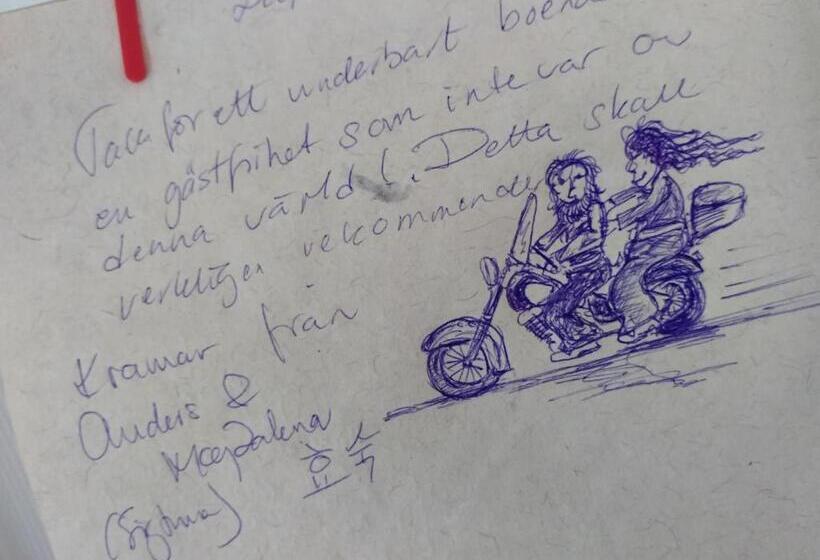 Tack för ett underbart boende
en gästfrihet som inte var av
denna värld!. Detta skall
verkligen rekommenderas
Kramar från
Anders &
Magdalena
(Sigtuna) 효숙